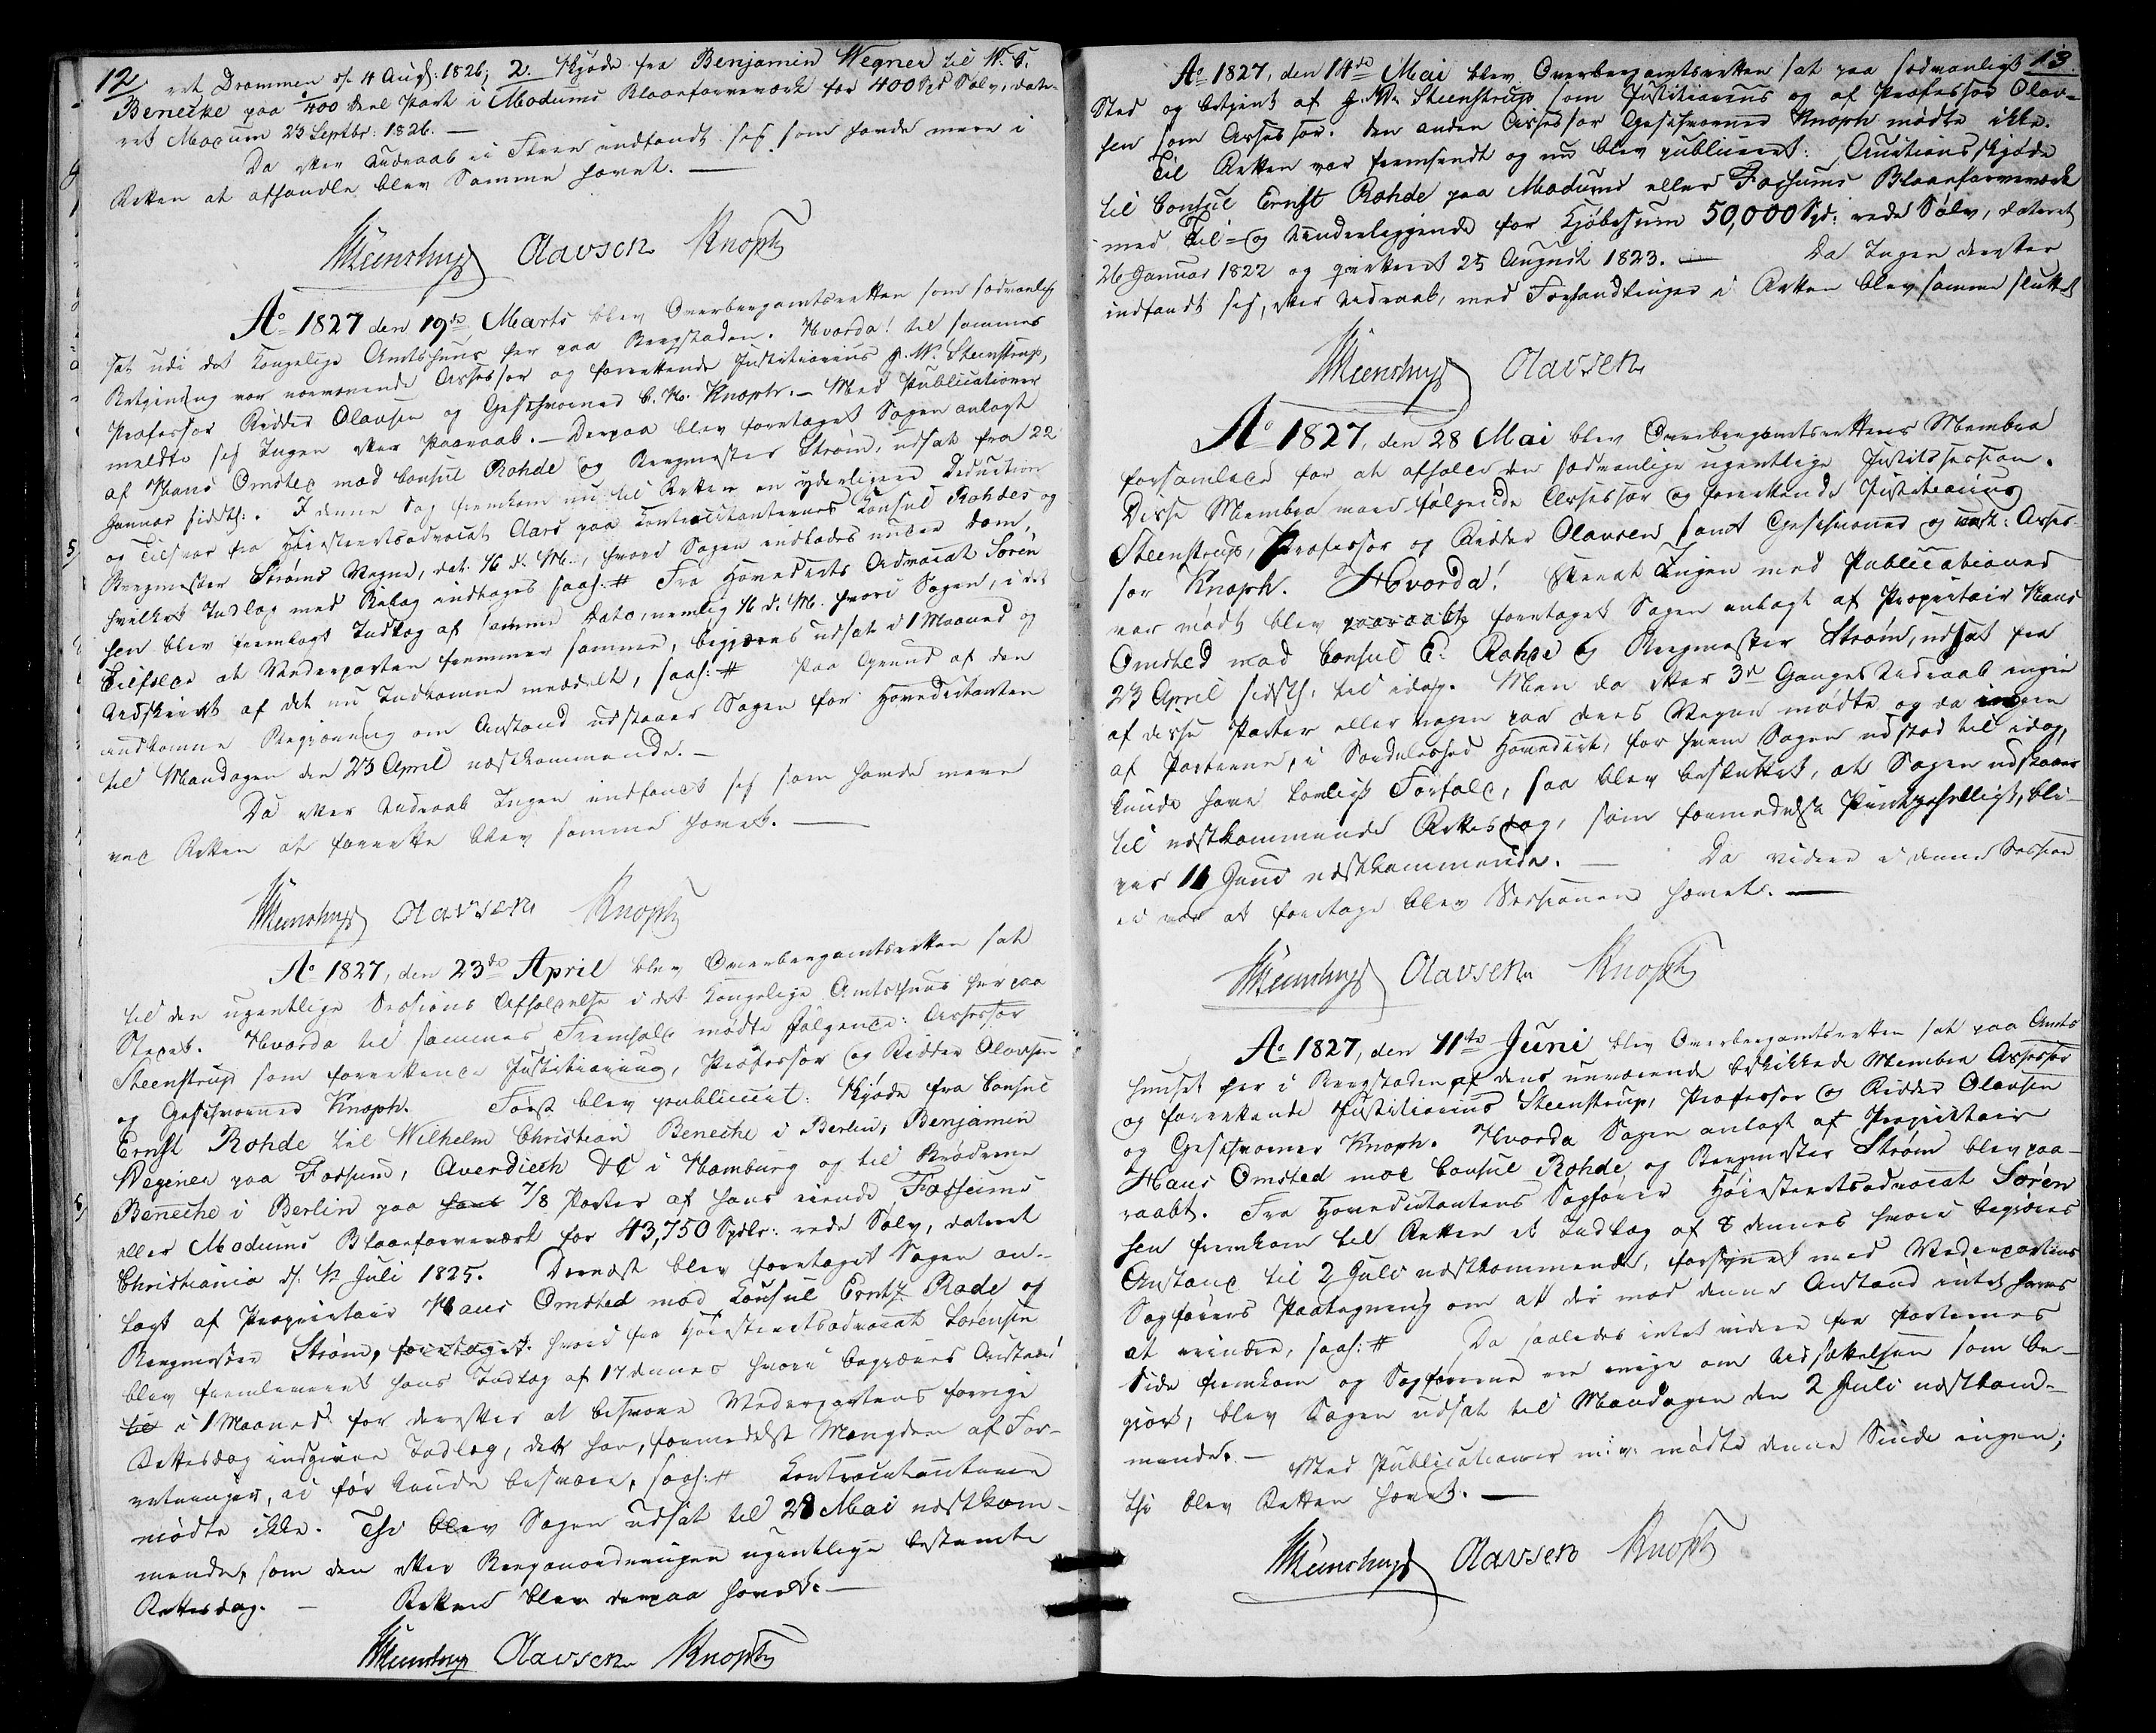 12
ret Drammen d. 4 Aug: 1826; 2. Skjøde fra Benjamin Wegner til W. C.
Benecke paa 1/400 Deel Part i Modums Blaafarveværk for 400 Spd Sølv, date-
ret Modum 23 Septbr: 1826. —
Da efter Udraab ei Fleere indfandt sig som havde mere i
Retten at afhandle blev Samme hævet. —
Steenstrup Olavsen Knoph
Ao 1827 den 19de Marts blev Overbergamtsretten som sædvanlig
sat udi det kongelige Amtshuus her paa Bergstaden. Hvorda! til sammes
Betjening var nærværende Assessor og forrettende Justitiarius P. W. Steenstrup,
Professor Ridder Olavsen og Geschworner C. H. Knoph. – Med Publicationer
meldte sig Ingen efter Paaraab. – Derpaa blev foretaget Sagen anlagt
af Hans Omsted mod Consul Rohde og Bergmester Strøm, udsat fra 22
Januar sidstl:. I denne Sag fremkom nu til Retten en yderligere Deduction
og Tilsvar fra Høiesteretsadvocat Aars paa Contracitanternes Konsul Rohdes og
Bergmester Strøms Vegne, dat. 16 d. M., hvori Sagen indlades under Dom,
hvilket Indlæg med Bilag indtages saal: # Fra Hovedcits Advocat Søren
sen blev fremlagt Indlæg af samme Dato, nemlig 16 d. M. hvori Sagen, i det
Tilfælde at Vederparten fremmer samme, begjæres udsat i 1 Maaned og
Udskrivt af det nu Indkomne meddelt, saal: # Paa Grund af den
indkomne Begjæring om Anstand udstaaer Sagen for Hovedcitanten
til Mandagen den 23 April næstkommende. –
Da efter Udraab Ingen indfandt sig som havde mere
ved Retten at forrette blev samme hævet. —
Steenstrup Olavsen Knoph
Ao 1827, den 23de April blev Overbergamtsretten sat
til den ugentlige Sessions Afholdelse i det kongelige Amtshuus her paa
Stedet. Hvorda til sammes Fremhold mødte følgende: Assessor
Steenstrup som forrettende Justitiarius, Professor og Ridder Olavsen
og Geschworner Knoph. Først blev publiceret: Skjøde fra Consul
Ernst Rohde til Wilhelm Christian Benecke i Berlin, Benjamin
Wegner paa Fossum, Averdieck & C i Hamburg og til Brødrene
Benecke i Berlin paa hans 7/8 Parter af hans eiende Fossums
eller Modums Blaafarveværk for 43,750 Spdlr: rede Sølv, dateret
Christiania d. 12 Juli 1825. Dernæst blev foretaget Sagen an-
lagt af Proprietair Hans Omsted mod Konsul Erntz Rade og
Bergmester Strøm, foretaget. hvori fra Høiesteretsadvocat Sørensen
blev fremleveret hans Indlæg af 17 dennes hvori begjæres Anstand
til i 1 Maaned for derefter at besvare Vederpartens forrige
Rettesdag indgivne Indlæg, det han, formedelst Mængden af For-
retninger, ei før kunde besvare, saal: # Contracitanterne
mødte ikke. Thi blev Sagen udsat til 28 Mai næstkom-
mende, som den efter Berganordningen ugentlige bestemte
Rettesdag. – Retten blev derpaa hævet. —
Steenstrup Olavsen Knoph
13.
Ao 1827, den 14de Mai blev Overbergamtsretten sat paa sædvanligt
Sted og betjent af P. W. Steenstrup som Justitiarius og af Professor Olav-
sen som Assessor. Den anden Assessor Geschworner Knoph mødte ikke.
Til Retten var fremsendt og nu blev publiceret: Auctionsskjøde
til Consul Ernst Rohde paa Modums eller Fossums Blaafarveværk
med Til- og Underliggende for Kjøbesum 50,000 Spd: rede Sølv, dateret
26 Januar 1822 og qvitteret 25 August 1823. — Da Ingen derefter
indfandt sig, efter Udraab, med Forhandlinger i Retten blev samme sluttet
Steenstrup Olavsen
Ao 1827, den 28 Mai blev Overbergamtsrettens Membra
forsamlede for at afholde den sædvanlige ugentlige Justitssession.
Disse Membra vare følgende Assessor og forrettende Justitiarius
Steenstrup, Professor og Ridder Olavsen samt Geschworner og const: Asses-
sor Knoph. Hvorda! efterat Ingen med Publicationer
var mødt blev paaraabt foretaget Sagen anlagt af Proprietair Hans
Omsted mod Consul E. Rohde og Bergmester Strøm, udsat fra
23 April sidstl: til idag. Men da efter 3de Ganges Udraab ingen
af disse Parter eller nogen paa deres Vegne mødte og da ingen
af Parterne, i Særdeleshed Hovedcit, for hvem Sagen udstod til idag,
kunde have lovligt Forfald, saa blev besluttet, at Sagen udstaaer
til næstkommende Rettesdag, som formedelst Pintsehelligt, bli-
ver 11 Juni næstkommende. — Da videre i denne Session
ei var at foretage blev Sessionen hævet. —
Steenstrup Olavsen Knoph
Ao 1827, den 11te Juni blev Overbergamtsretten sat paa Amts
huuset her i Bergstaden af dens nuværende beskikkede Membra Assessor
og forrettende Justitiarius Steenstrup, Professor og Ridder Olavsen
og Geschworner Knoph. Hvorda Sagen anlagt af Proprietair
Hans Omsted mod Consul Rohde og Bergmester Strøm blev paa-
raabt. Fra Hovedcitantens Sagfører Høiesteretsadvocat Søren
sen fremkom til Retten et Indlæg af 8 dennes hvori begjæres
Anstand til 2 Juli næstkommende, forsynet med Vederpartens
Sagførers Paategning om at der mod denne Anstand intet haves
at erindre, saal: # Da saaledes intet videre fra Parternes
Side fremkom og Sagførerne ere enige om Udsættelsen som be-
gjært, blev Sagen udsat til Mandagen den 2 Juli næstkom-
mende. – Med Publicationer m: v: mødte denne Sinde ingen;
thi blev Retten hævet. —
Steenstrup Olavsen Knoph